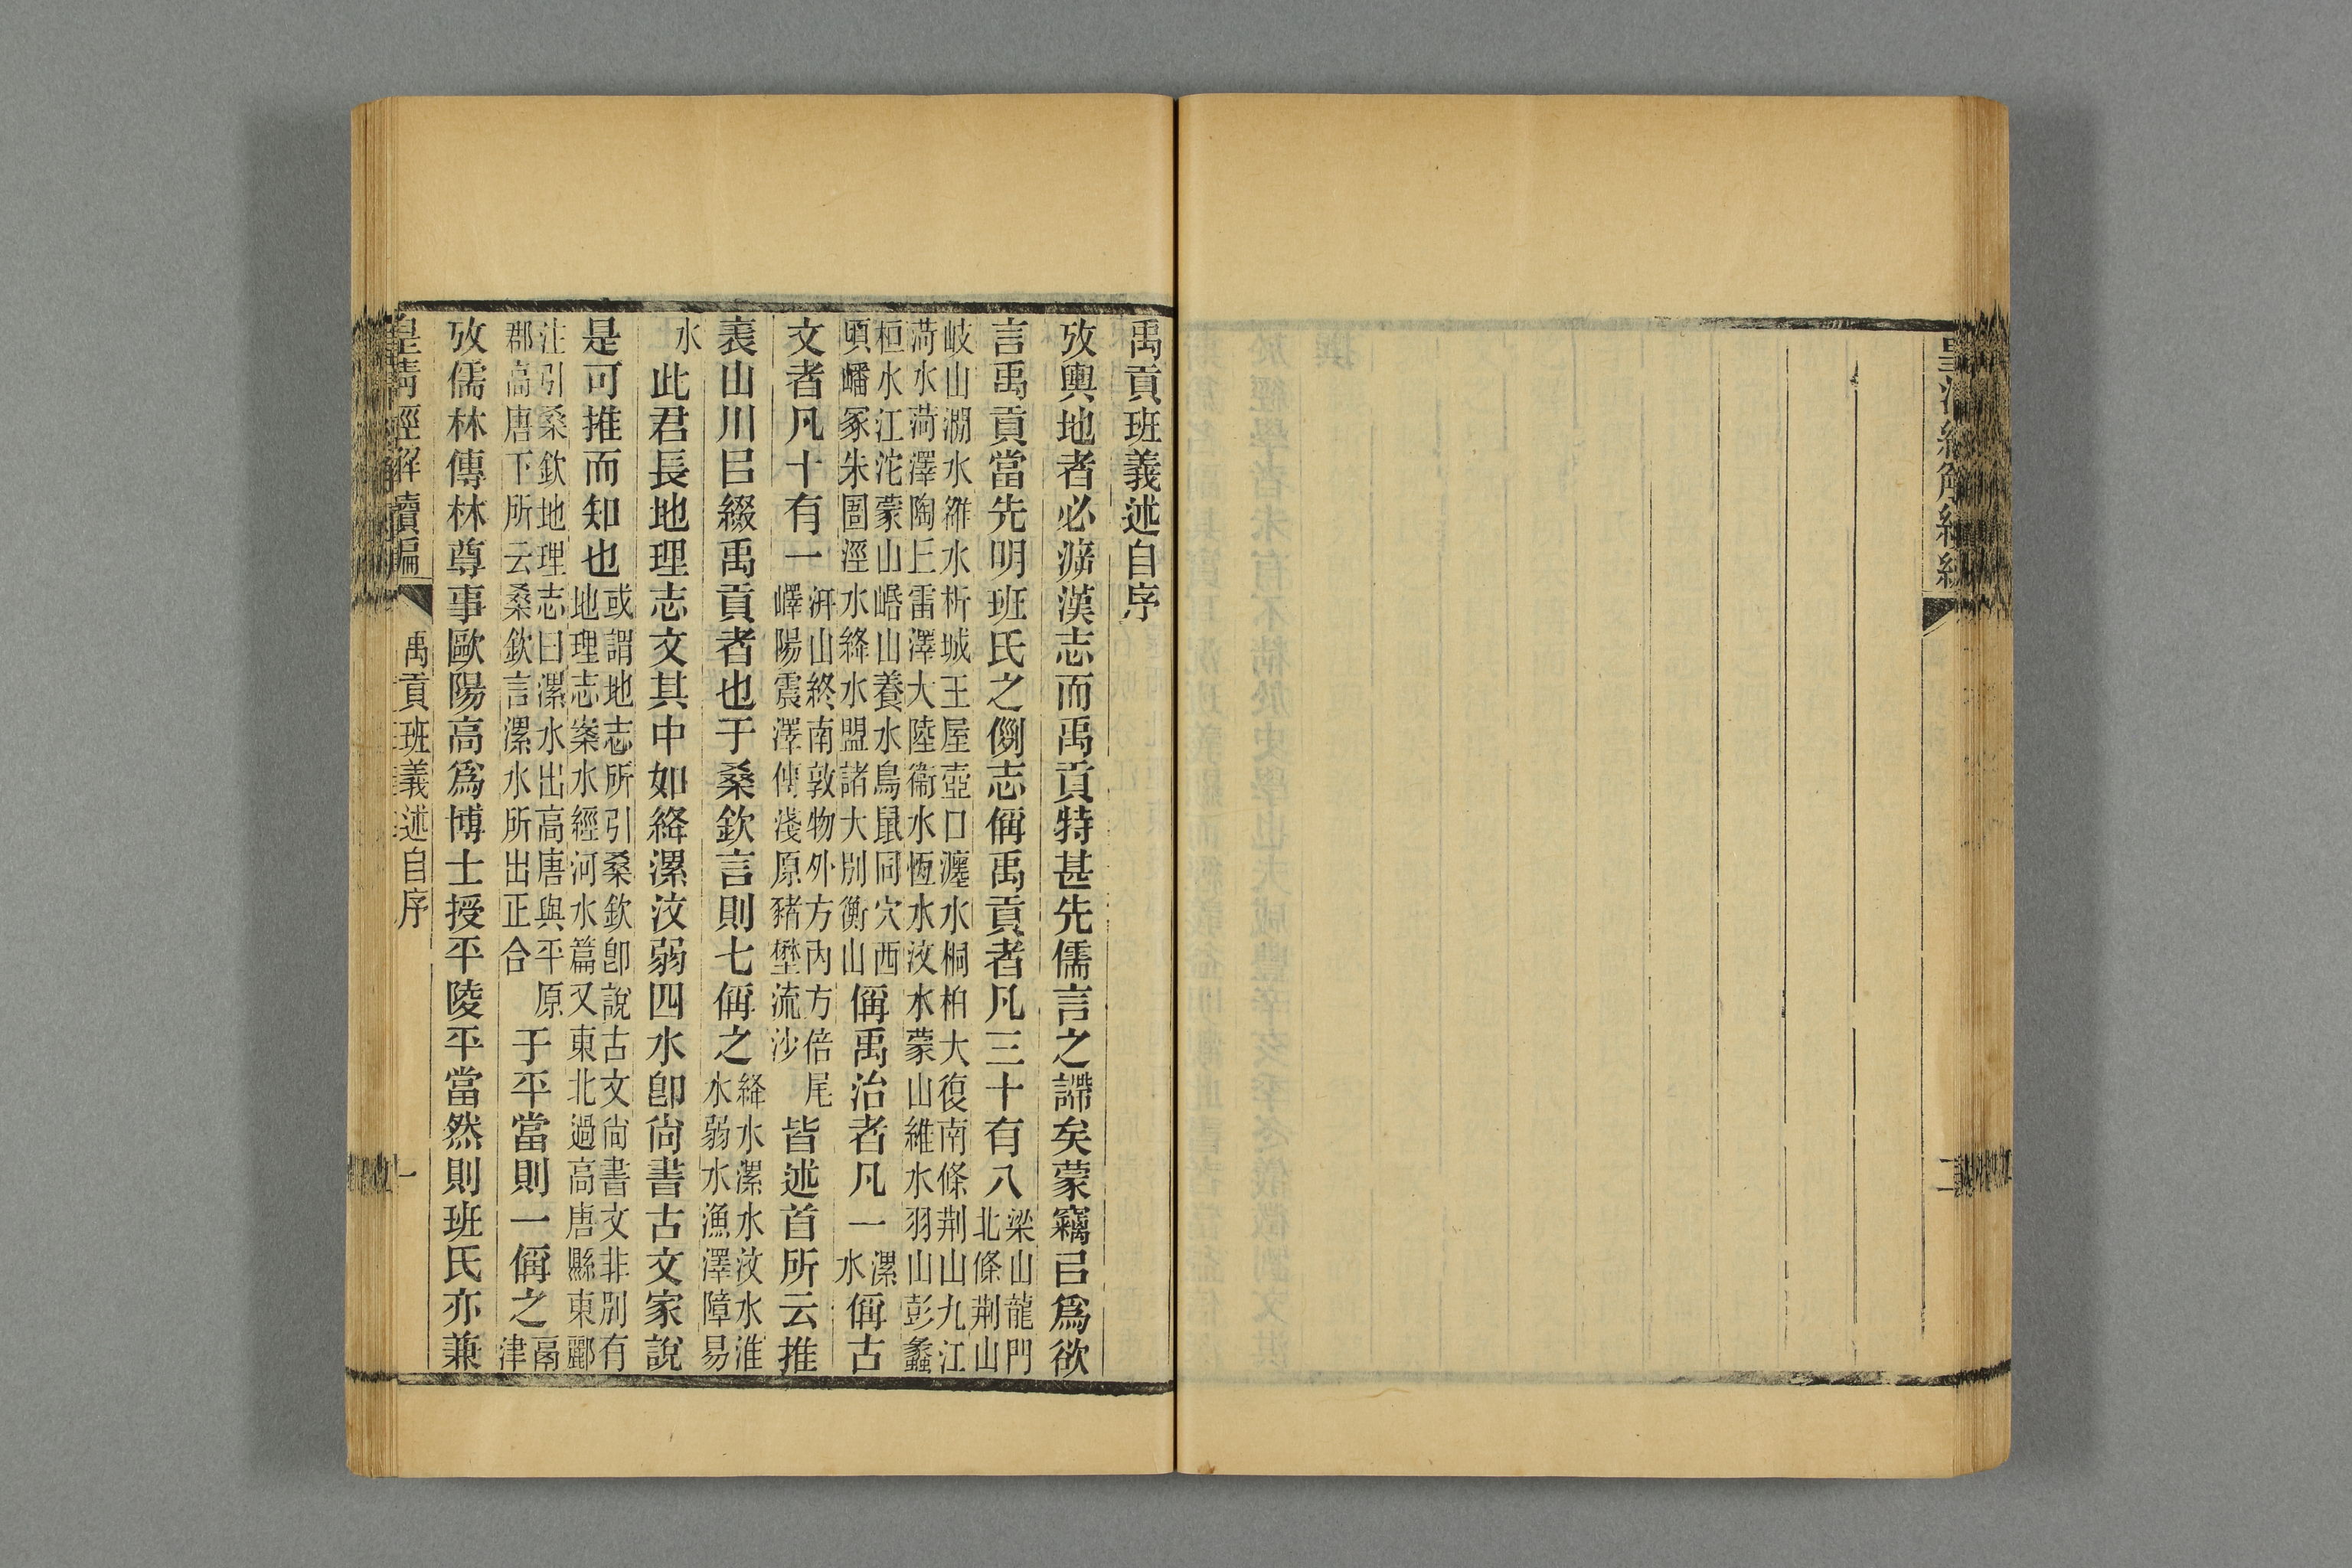 禹貢班義述自序
攷輿地者必𤴯漢志而禹貢特甚先儒言之諦矣蒙竊㠯爲欲
言禹貢當先明班氏之例志偁禹貢者凡三十有八梁山龍門北條荆山
岐山澗水雒水析城王屋壺口瀍水桐柏大復南條荆山九江
菏水菏澤陶丘雷澤大陸衞水恆水汶水蒙山維水羽山彭蠡
桓水江沱蒙山㟭山養水鳥鼠同穴西
頃嶓冢朱圄涇水絳水盟諸大别衡山偁禹治者凡一漯水偁古
文者凡十有一汧山終南敦物外方内方倍尾嶧陽震澤傅淺原豬壄流沙皆述首所云推
裹山川㠯綴禹貢者也于桑欽言則七偁之絳水漯水汶水淮水弱水漁澤障易
水此君長地理志文其中如絳漯汶弱四水卽尙書古文家說
是可推而知也或謂地志所引桑欽卽說古文尙書文非別有地理志案水經河水篇又東北過高唐縣東酈
注引桑欽地理志曰漯水出高唐與平原郡高唐下所云桑欽言漯水所出正合于平當則一偁之鬲津
攷儒林傳林尊事歐陽高爲博士授平陵平當然則班氏亦兼
皇清經解續編
禹貢班義述自序
一
二